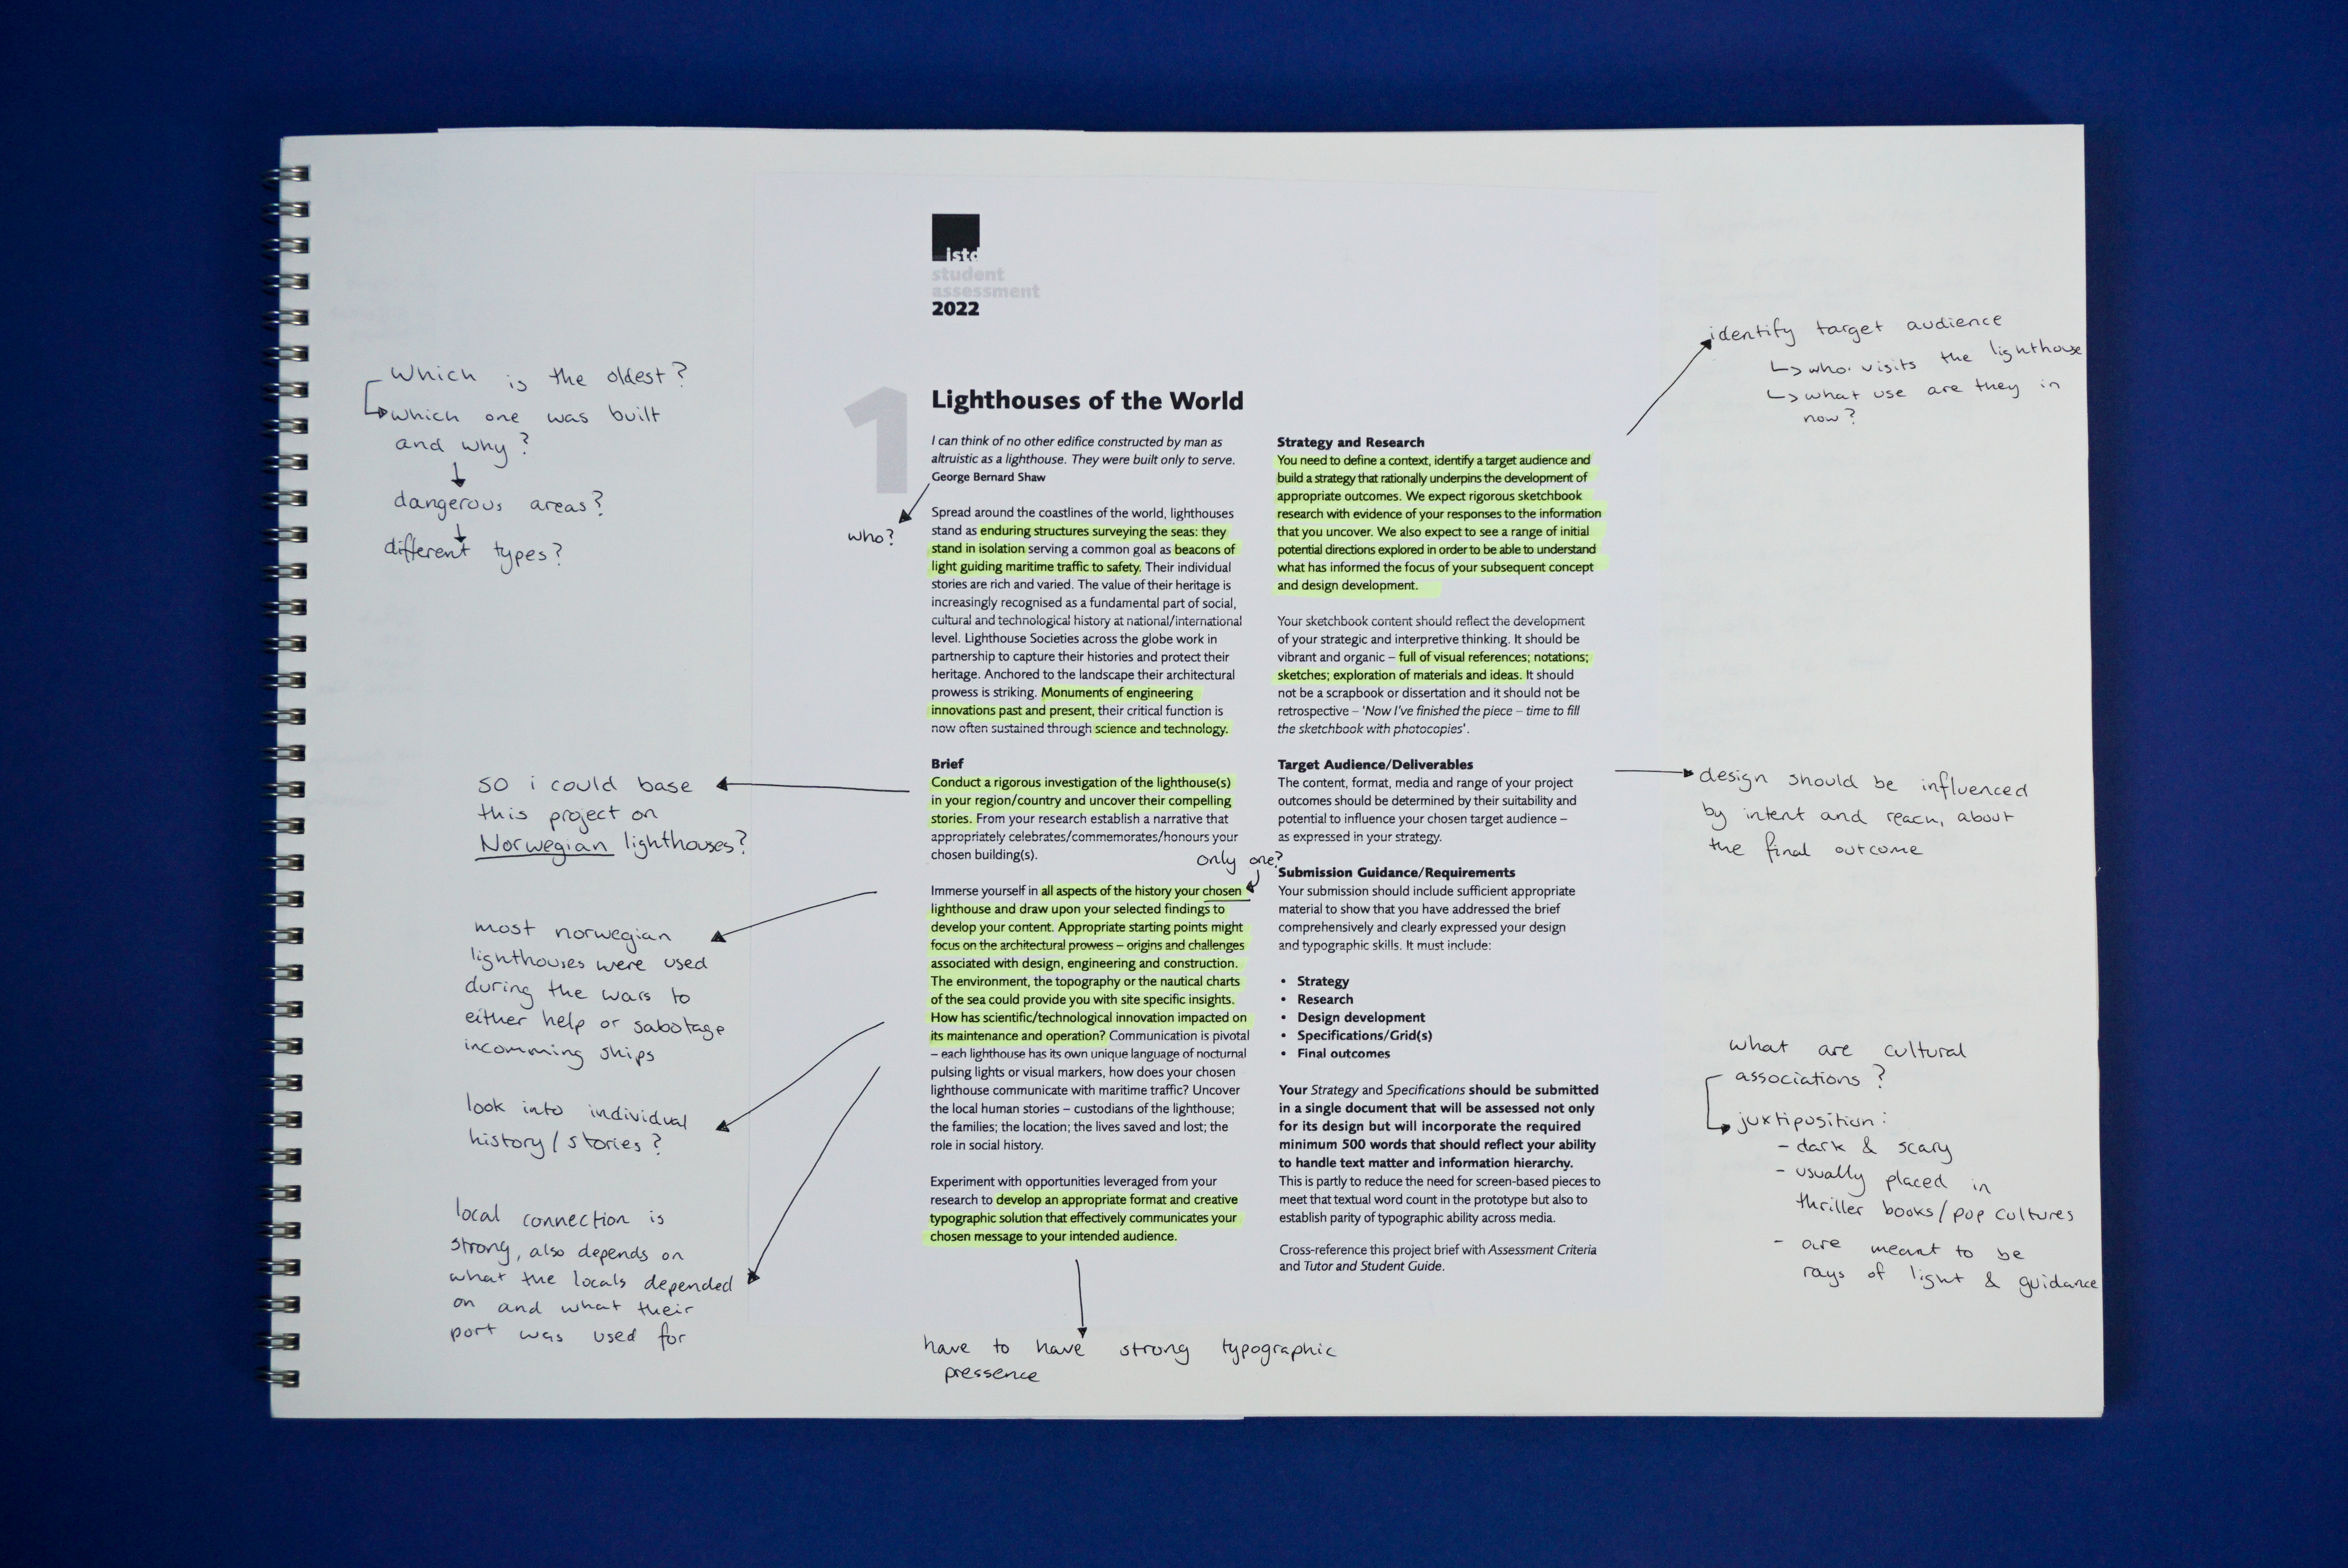 istd
student
assessment
2022
1
Lighthouses of the World
I can think of no other edifice constructed by man as
altruistic as a lighthouse. They were built only to serve.
George Bernard Shaw
Spread around the coastlines of the world, lighthouses
stand as enduring structures surveying the seas: they
stand in isolation serving a common goal as beacons of
light guiding maritime traffic to safety. Their individual
stories are rich and varied. The value of their heritage is
increasingly recognised as a fundamental part of social,
cultural and technological history at national/international
level. Lighthouse Societies across the globe work in
partnership to capture their histories and protect their
heritage. Anchored to the landscape their architectural
prowess is striking. Monuments of engineering
innovations past and present, their critical function is
now often sustained through science and technology.
Brief
Conduct a rigorous investigation of the lighthouse(s)
in your region/country and uncover their compelling
stories. From your research establish a narrative that
appropriately celebrates/commemorates/honours your
chosen building(s).
Immerse yourself in all aspects of the history your chosen
lighthouse and draw upon your selected findings to
develop your content. Appropriate starting points might
focus on the architectural prowess – origins and challenges
associated with design, engineering and construction.
The environment, the topography or the nautical charts
of the sea could provide you with site specific insights.
How has scientific/technological innovation impacted on
its maintenance and operation? Communication is pivotal
– each lighthouse has its own unique language of nocturnal
pulsing lights or visual markers, how does your chosen
lighthouse communicate with maritime traffic? Uncover
the local human stories – custodians of the lighthouse;
the families; the location; the lives saved and lost; the
role in social history.
Experiment with opportunities leveraged from your
research to develop an appropriate format and creative
typographic solution that effectively communicates your
chosen message to your intended audience.
Strategy and Research
You need to define a context, identify a target audience and
build a strategy that rationally underpins the development of
appropriate outcomes. We expect rigorous sketchbook
research with evidence of your responses to the information
that you uncover. We also expect to see a range of initial
potential directions explored in order to be able to understand
what has informed the focus of your subsequent concept
and design development.
Your sketchbook content should reflect the development
of your strategic and interpretive thinking. It should be
vibrant and organic – full of visual references; notations;
sketches; exploration of materials and ideas. It should
not be a scrapbook or dissertation and it should not be
retrospective – 'Now I've finished the piece – time to fill
the sketchbook with photocopies'.
Target Audience/Deliverables
The content, format, media and range of your project
outcomes should be determined by their suitability and
potential to influence your chosen target audience –
as expressed in your strategy.
Submission Guidance/Requirements
Your submission should include sufficient appropriate
material to show that you have addressed the brief
comprehensively and clearly expressed your design
and typographic skills. It must include:
• Strategy
• Research
• Design development
• Specifications/Grid(s)
• Final outcomes
Your Strategy and Specifications should be submitted
in a single document that will be assessed not only
for its design but will incorporate the required
minimum 500 words that should reflect your ability
to handle text matter and information hierarchy.
This is partly to reduce the need for screen-based pieces to
meet that textual word count in the prototype but also to
establish parity of typographic ability across media.
Cross-reference this project brief with Assessment Criteria
and Tutor and Student Guide.
which is the oldest?
which one was built
and why?
dangerous areas?
different types?
who?
so i could base
this project on
Norwegian lighthouses?
only one?
most norwegian
lighthouses were used
during the wars to
either help or sabotage
incomming ships
look into individual
history/stories?
local connection is
strong, also depends on
what the locals depended
on and what their
port was used for
have to have strong typographic
pressence
identify target audience
↳ who visits the lighthouse
↳ what use are they in
now?
design should be influenced
by intent and reach, about
the final outcome
what are cultural
associations?
juxtiposition:
- dark & scary
- usually placed in
thriller books/pop cultures
- are meant to be
rays of light & guidance